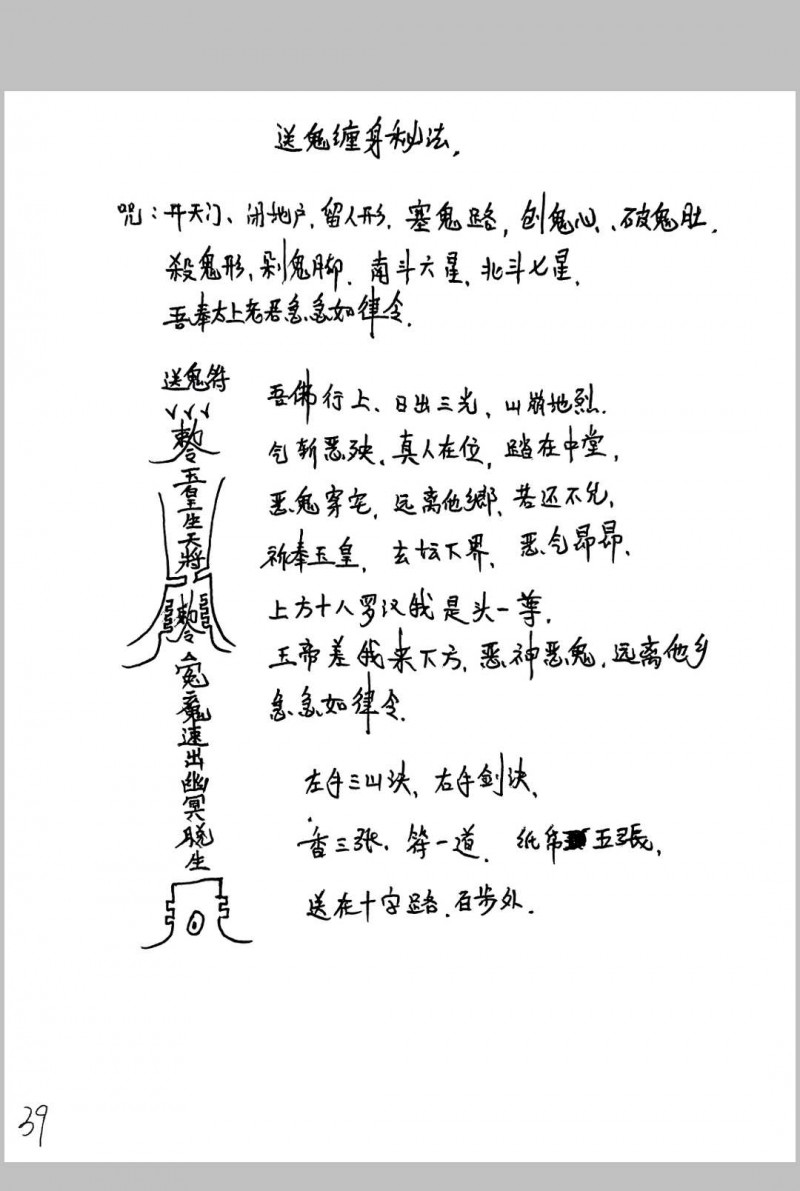 送鬼缠身秘法.
咒:开天门、闭地户,留人形,塞鬼路,刨鬼心、破鬼肚.
殺鬼形,剁鬼脚.南斗六星,北斗七星,
吾奉太上老君急急如律令.
送鬼符
敕令
玉皇生天將
敕令
冤魔速出幽冥脱生
吾佛行上、日出三光,山崩地烈.
气斩恶殃.真人在位,踏在中堂,
恶鬼穿宅,远离他鄉,若还不允,
祈奉玉皇,玄坛下界,恶气昂昂.
上方十八罗汉我是头一尊.
玉帝差我来下方,恶神恶鬼,远离他乡
急急如律令.
左手三山決,右手剑決,
香三张.符一道.纸帛五張,
送在十字路.百步外.
39